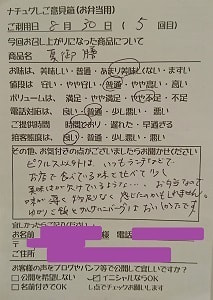 ナチュグしご意見箱(お弁当用)
ご利用日 8月30日(5回目)
今回お召し上がりになった商品について
商品名 夏御膳
お味は、美味しい・普通・あまり美味しくない・まずい
値段は 安い・やや安い・普通・やや高い・高い
ボリュームは、満足・やや満足・やや不足・不足
電話対応は、良い・普通・少し悪い・悪い
ご提供時間 時間どおり・遅れた・早過ぎる
接客態度は、良い・普通・少し悪い・悪い
その他、お気付きの点がございましたらお聞かせください
ピクルス以外は、いつもランチなどで
お店で食べている味と比べて少し
美味しさがかけているような・・・お弁当なので
味が薄く物足りなく感じたのかもしれません。
良かったらご記入ください
お名前 様 電話
〒
ご住所
お客様の声をブログやパンフ等で公開して宜しいですか?
□公開を希望しない イニシャルならOK
□名前付きでOK レ点でチェックお願いします